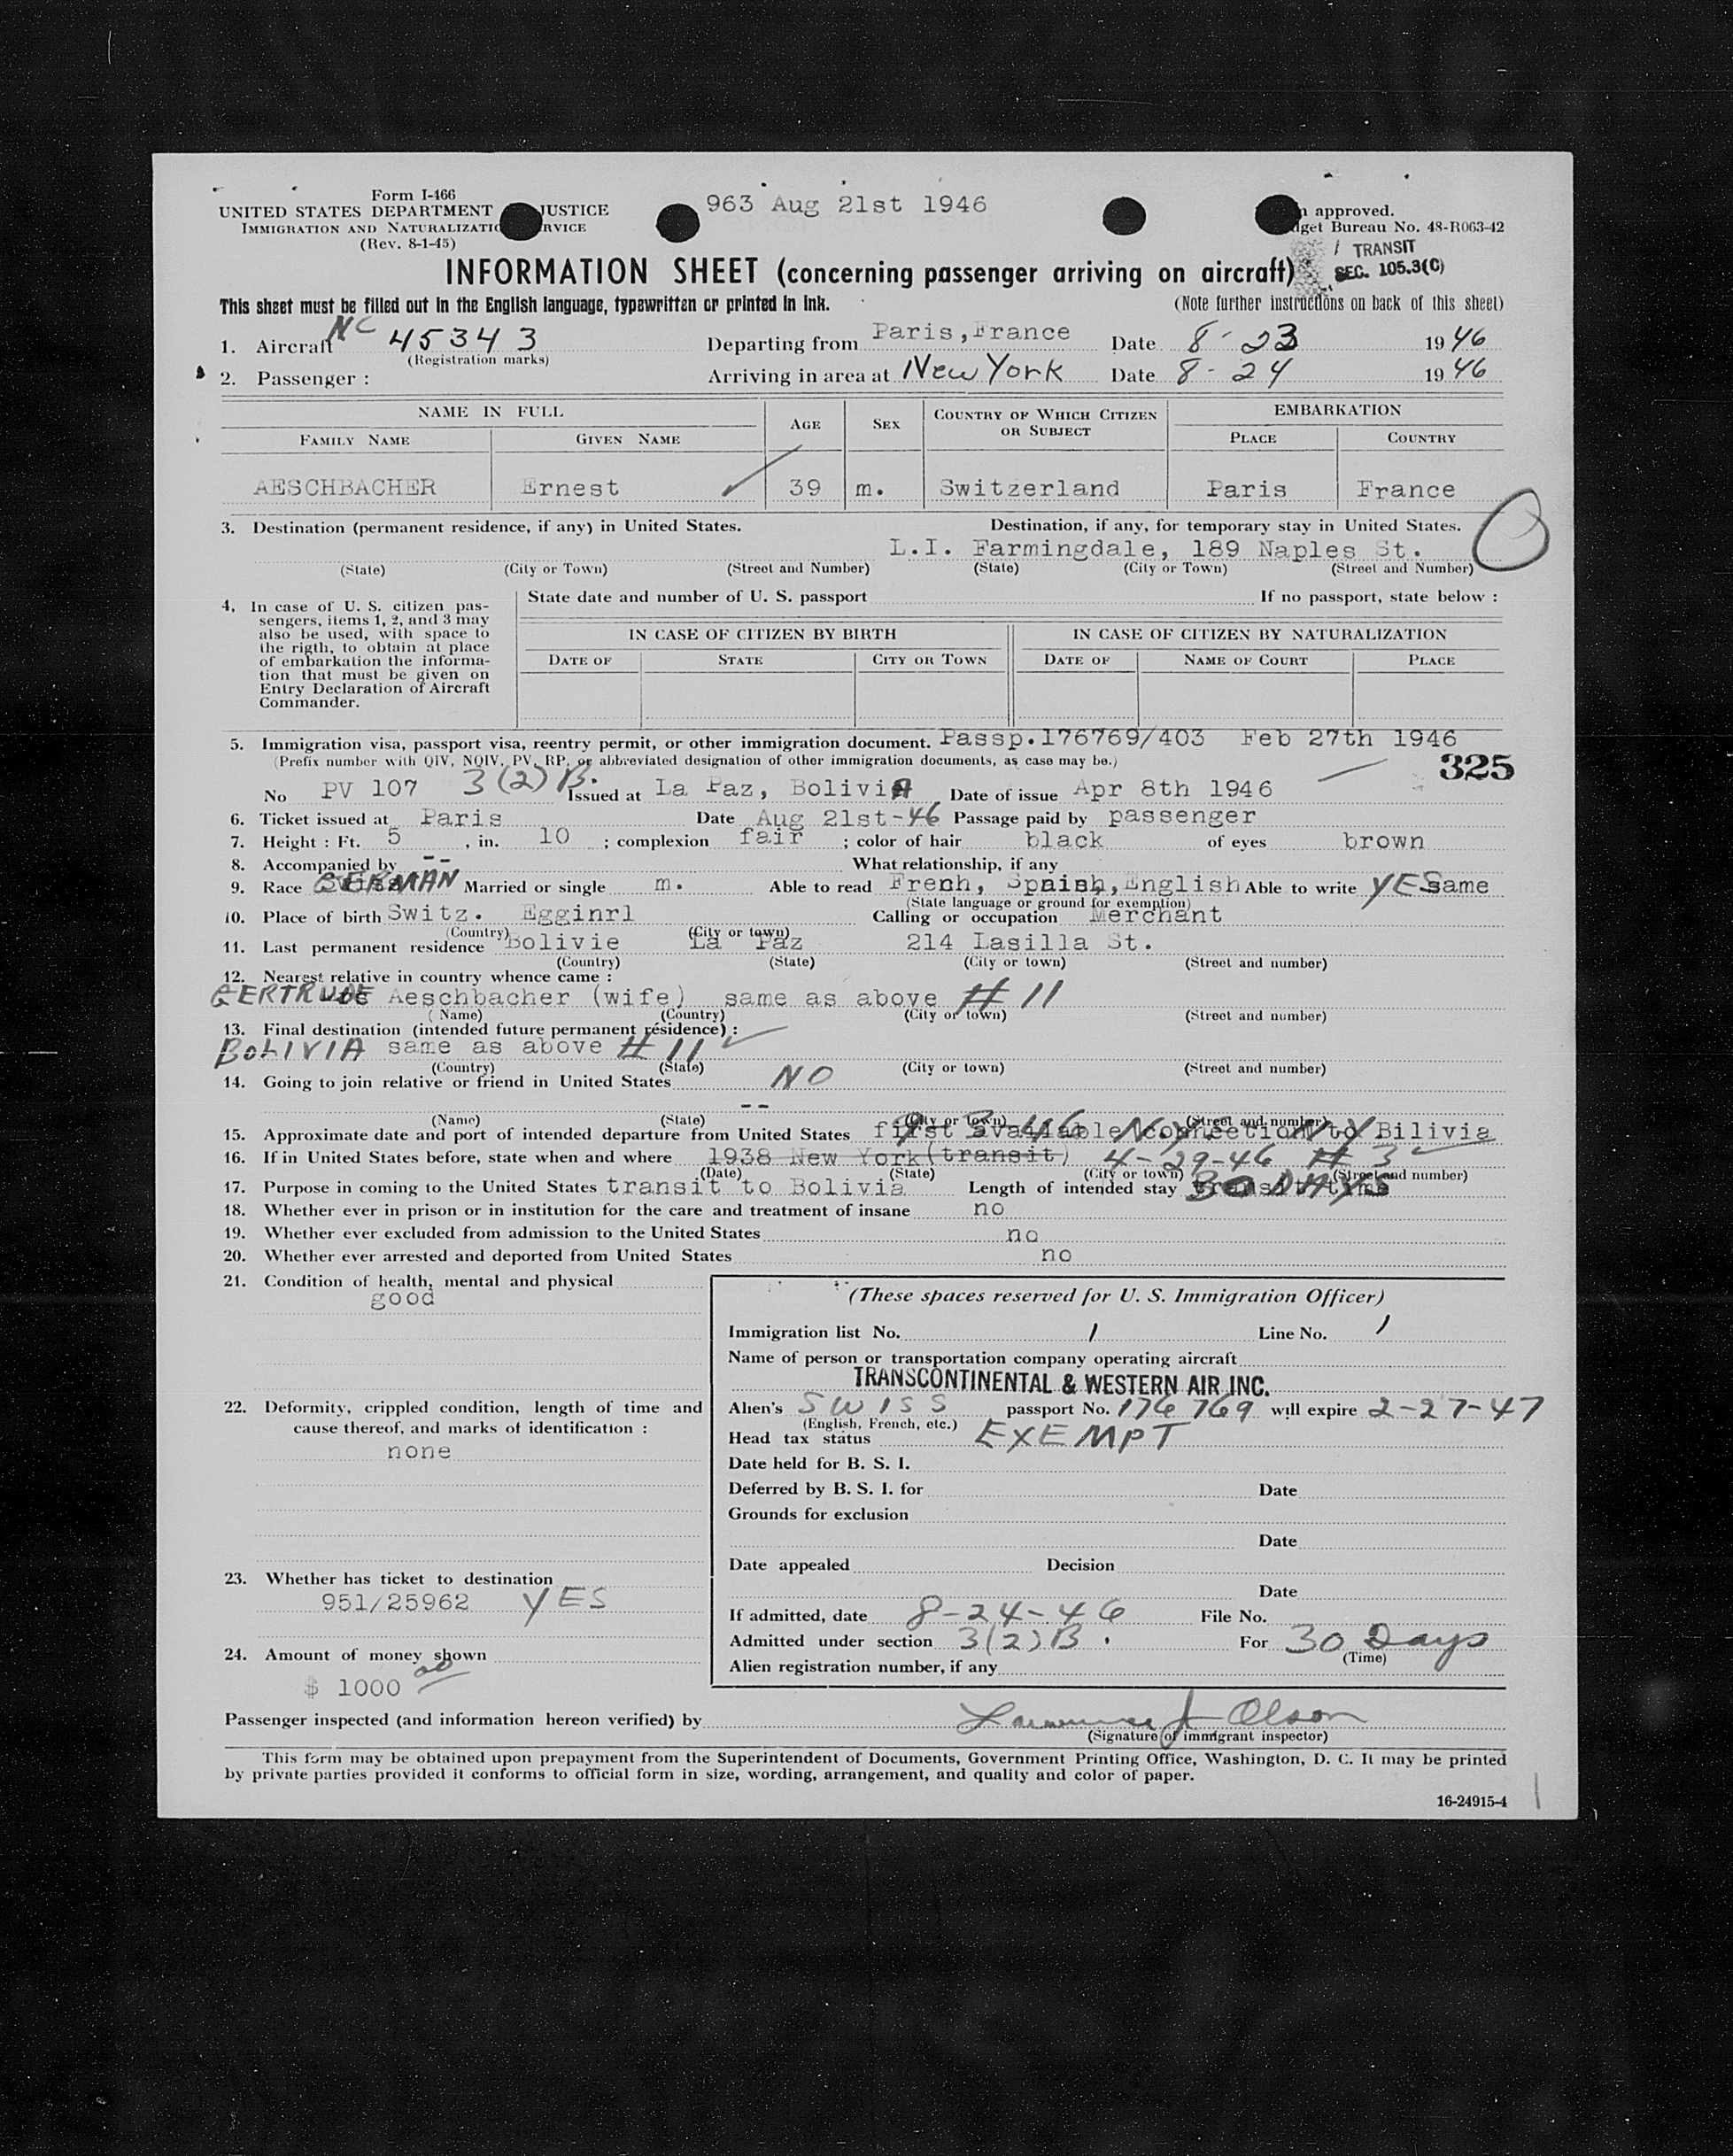 Form I-466
963 Aug 21st 1946
UNITED STATES DEPARTMENT JUSTICE
approved.
IMMIGRATION AND NATURALIZATIO RVICE
dget Bureau No. 48-R063-42
(Rev. 8-1-45)
/ TRANSIT
SEC. 105.3(C)
INFORMATION SHEET (concerning passenger arriving on aircraft)
This sheet must be filled out in the English language, typewritten or printed in ink. (Note further instructions on back of this sheet)
1. Aircraft NC 45343 Departing from Paris,France Date 8-23 1946
(Registration marks)
2. Passenger : Arriving in area at New York Date 8-24 1946
NAME IN FULL AGE SEX COUNTRY OF WHICH CITIZEN OR SUBJECT EMBARKATION
FAMILY NAME GIVEN NAME PLACE COUNTRY
AESCHBACHER Ernest 39 m. Switzerland Paris France
3. Destination (permanent residence, if any) in United States. Destination, if any, for temporary stay in United States.
L.I. Farmingdale, 189 Naples St.
(State) (City or Town) (Street and Number) (State) (City or Town) (Street and Number)
4. In case of U. S. citizen pas-
sengers, items 1, 2, and 3 may
also be used, with space to
the rigth, to obtain at place
of embarkation the informa-
tion that must be given on
Entry Declaration of Aircraft
Commander.
State date and number of U. S. passport If no passport, state below :
IN CASE OF CITIZEN BY BIRTH IN CASE OF CITIZEN BY NATURALIZATION
DATE OF STATE CITY OR TOWN DATE OF NAME OF COURT PLACE
5. Immigration visa, passport visa, reentry permit, or other immigration document. Passp.176769/403 Feb 27th 1946
(Prefix number with QIV, NQIV, PV, RP, or abbreviated designation of other immigration documents, as case may be.)
325
No PV 107 3(2)B. Issued at La Paz, BoliviA Date of issue Apr 8th 1946
6. Ticket issued at Paris Date Aug 21st-46 Passage paid by passenger
7. Height : Ft. 5 , in. 10 ; complexion fair ; color of hair black of eyes brown
8. Accompanied by -- What relationship, if any
9. Race GERMAN Married or single m. Able to read French, Spaish,English Able to write YES same
(State language or ground for exemption)
10. Place of birth Switz. Egginrl Calling or occupation Merchant
(Country) (City or town)
11. Last permanent residence Bolivie La Paz 214 Lasilla St.
(Country) (State) (City or town) (Street and number)
12. Nearest relative in country whence came :
GERTRUDE Aeschbacher (wife) same as above # 11
(Name) (Country) (City or town) (Street and number)
13. Final destination (intended future permanent résidence) :
BOLIVIA same as above # 11
(Country) (State) (City or town) (Street and number)
14. Going to join relative or friend in United States NO
--
(Name) (State) (City or town) (Street and number)
15. Approximate date and port of intended departure from United States first available connection to Bilivia
16. If in United States before, state when and where 1938 New York (transit) 4-29-46 # 3
(Date) (State) (City or town) (Street and number)
17. Purpose in coming to the United States transit to Bolivia Length of intended stay 30 DAYS
18. Whether ever in prison or in institution for the care and treatment of insane no
19. Whether ever excluded from admission to the United States no
20. Whether ever arrested and deported from United States no
21. Condition of health, mental and physical
good
(These spaces reserved for U. S. Immigration Officer)
Immigration list No. 1 Line No. 1
Name of person or transportation company operating aircraft
TRANSCONTINENTAL & WESTERN AIR INC.
22. Deformity, crippled condition, length of time and
cause thereof, and marks of identification :
none
Alien's SWISS passport No. 176769 will expire 2-27-47
(English, French, etc.)
Head tax status EXEMPT
Date held for B. S. I.
Deferred by B. S. I. for Date
Grounds for exclusion
Date
Date appealed Decision
Date
23. Whether has ticket to destination
951/25962 YES
If admitted, date 8-24-46 File No.
Admitted under section 3(2)B. For 30 Days
(Time)
Alien registration number, if any
24. Amount of money shown
$ 1000 00
Passenger inspected (and information hereon verified) by Lawrence J Olson
(Signature of immigrant inspector)
This form may be obtained upon prepayment from the Superintendent of Documents, Government Printing Office, Washington, D. C. It may be printed
by private parties provided it conforms to official form in size, wording, arrangement, and quality and color of paper.
16-24915-4